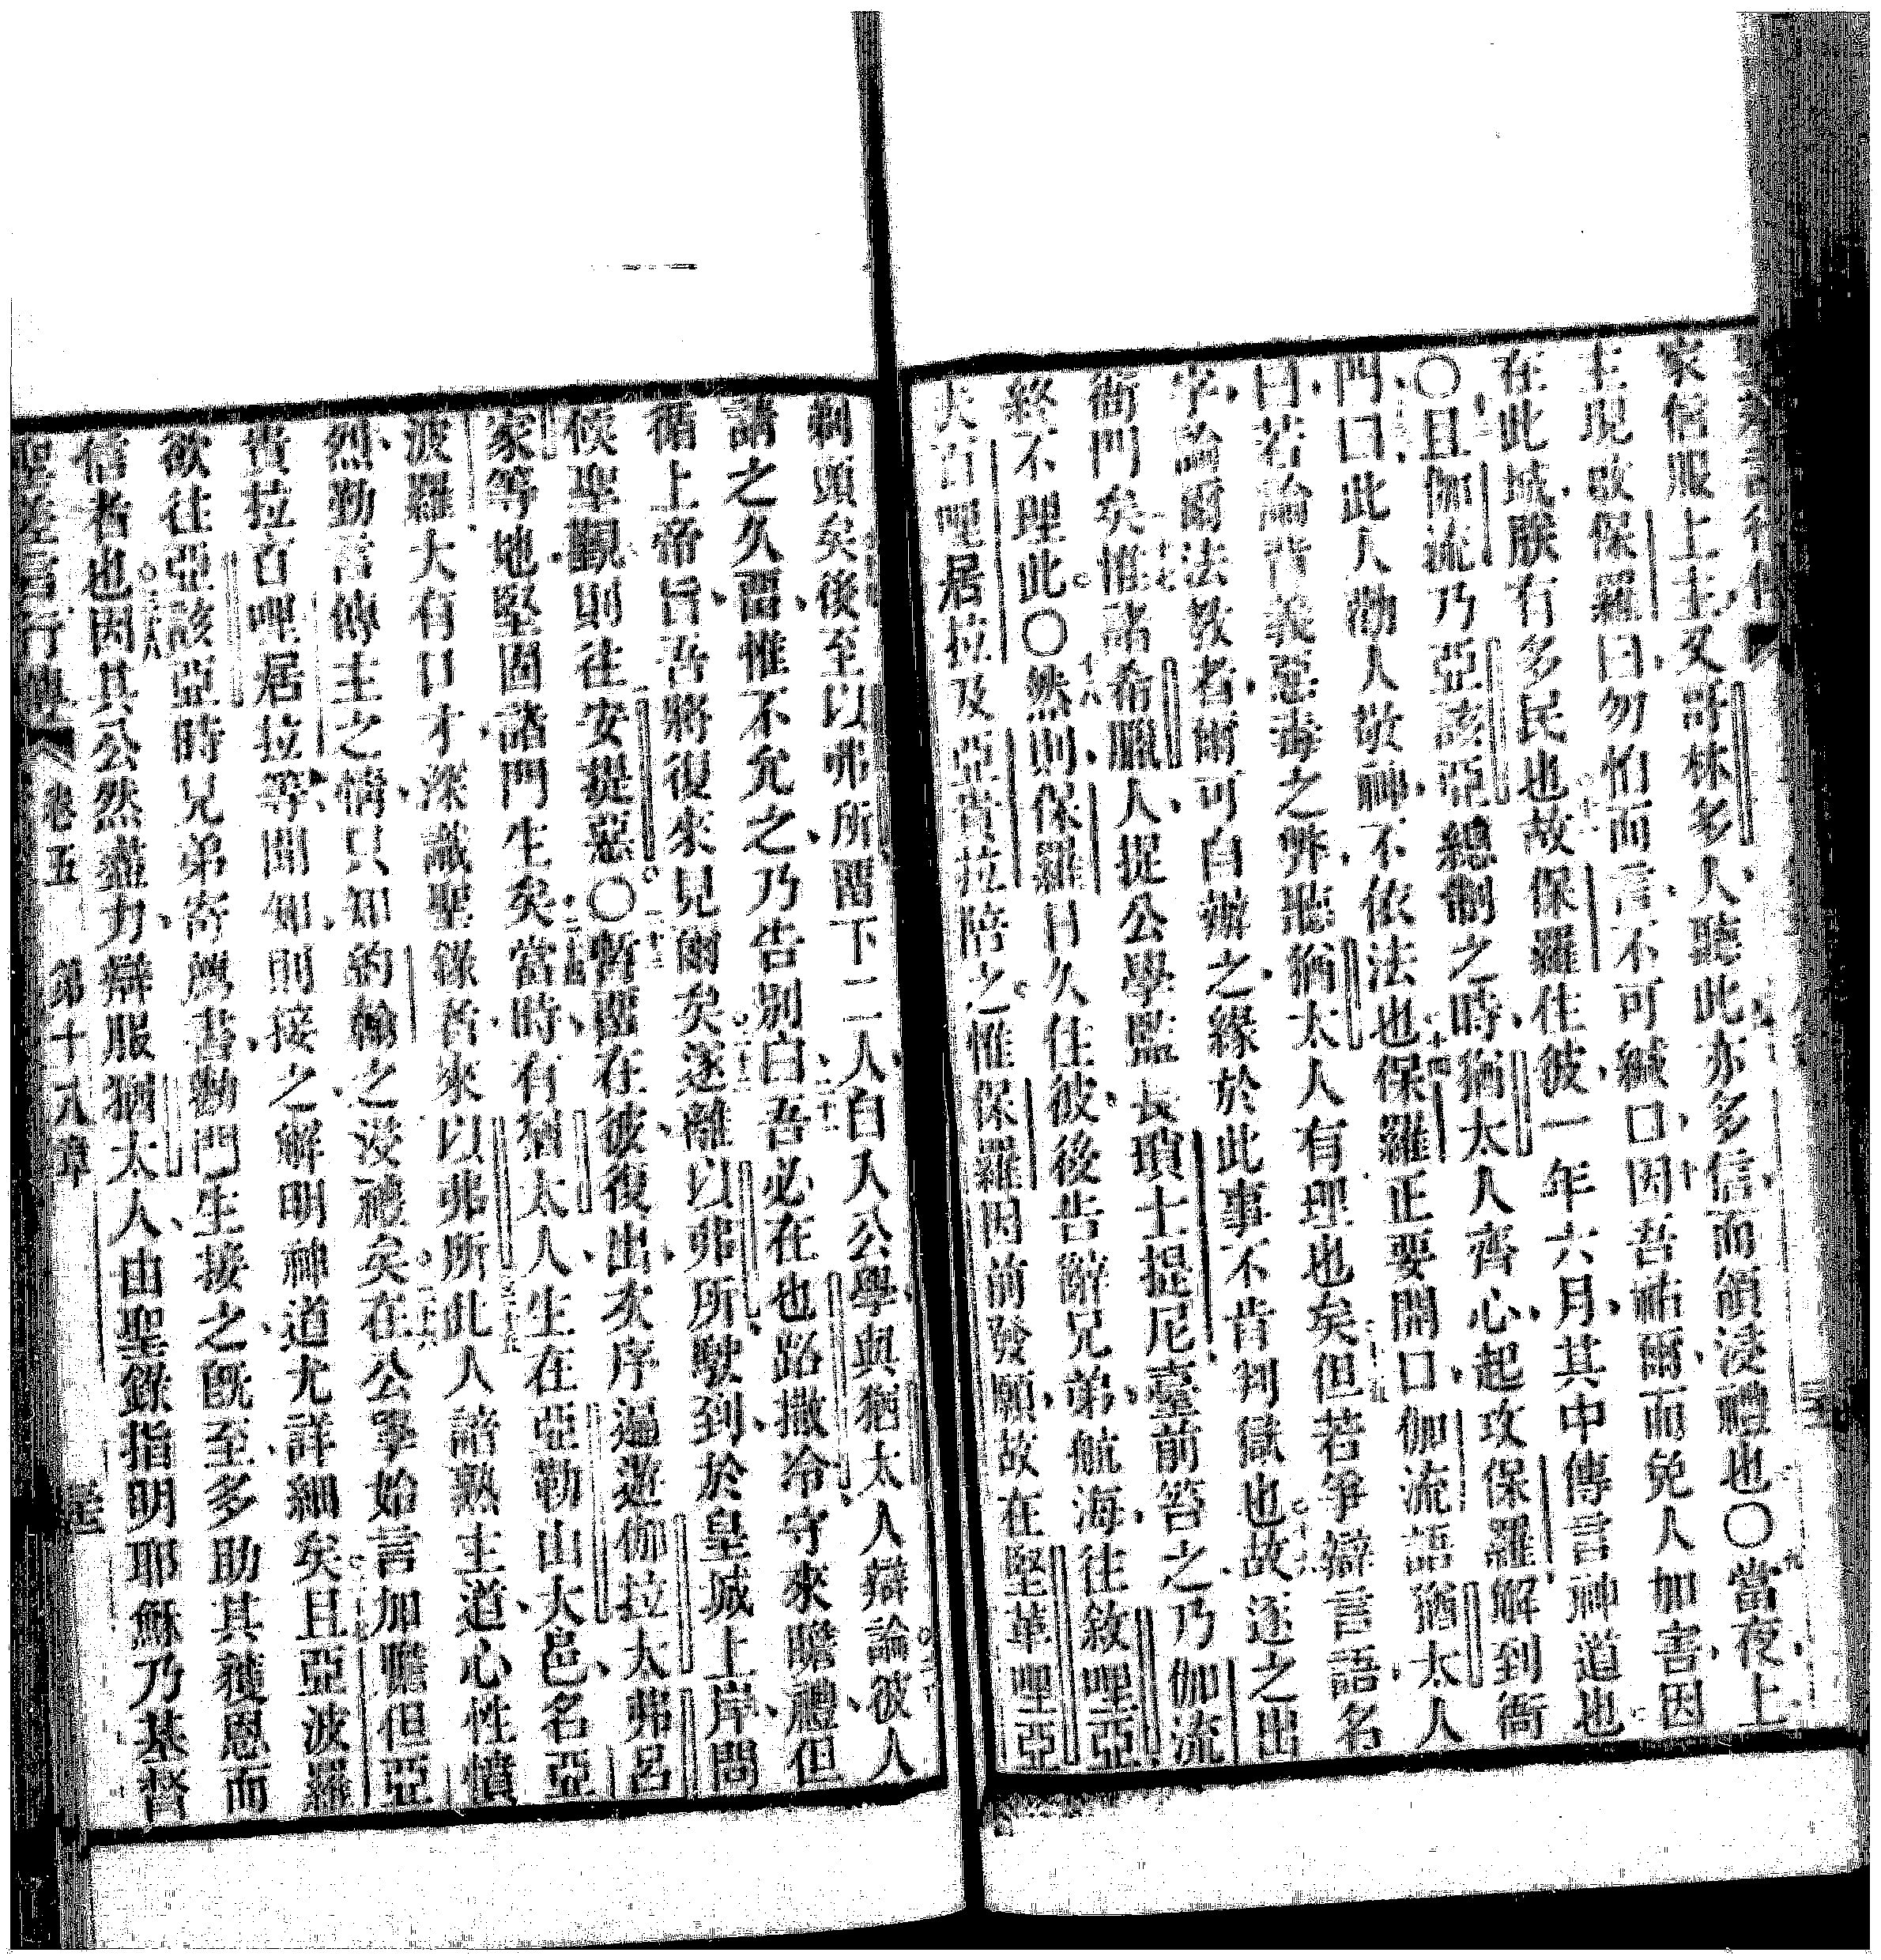 家信服上主又哥林多人聽此亦多信而領浸禮也〇當夜上
主現啟保羅曰勿怕而言不可緘口十因吾祐爾而免人加害因
在此城朕有多民也故保羅住彼一年六月其中傳言神道也
〇且伽流乃亞該亞總制之時猶太人齊心起攻保羅解到衙
門曰此人勸人敬神不依法也十四保羅正要開口伽流語猶太人
曰若論背義惡毒之弊聽猶太人有理也矣但若爭辯言語名
字論爾法教者爾可自辦之緣於此事不肯判獄也故逐之出
衙門矣十七惟諸希臘人捉公學監長瑣士提尼臺前笞之乃伽流
終不理此〇十八然則保羅日久住彼後告辭兄弟航海往敘哩亞
夫百哩居拉及亞貴拉陪之惟保羅因前發願故在堅革哩亞
剃頭矣後至以弗所畱下二人自入公學與猶太人辯論彼人
請之久畱惟不允之乃告別白吾必在也路撒冷守來瞻禮但
循上帝旨吾將復來見爾矣遂離以弗所駛到於皇城上岸問
候聖觀則往安提惡〇暫畱在彼復出次序遍遊伽拉太弗呂
家等地堅固諸門生矣當時有猶太人生在亞勒山大邑名亞
波羅大有口才深識聖錄者來以弗所此人諳熟主道心性憤
烈勤言傳主之情只知約翰之浸禮矣在公學始言加膽但亞
貴拉百哩居拉等聞知則接之解明神道尤詳細矣且亞波羅
欲往亞該亞時兄弟寄薦書勸門生接之既至多助其獲恩而
信者也因其公然盡力辯服猶太人由聖錄指明耶穌乃基督
聖差言行傳 卷五 第十八章